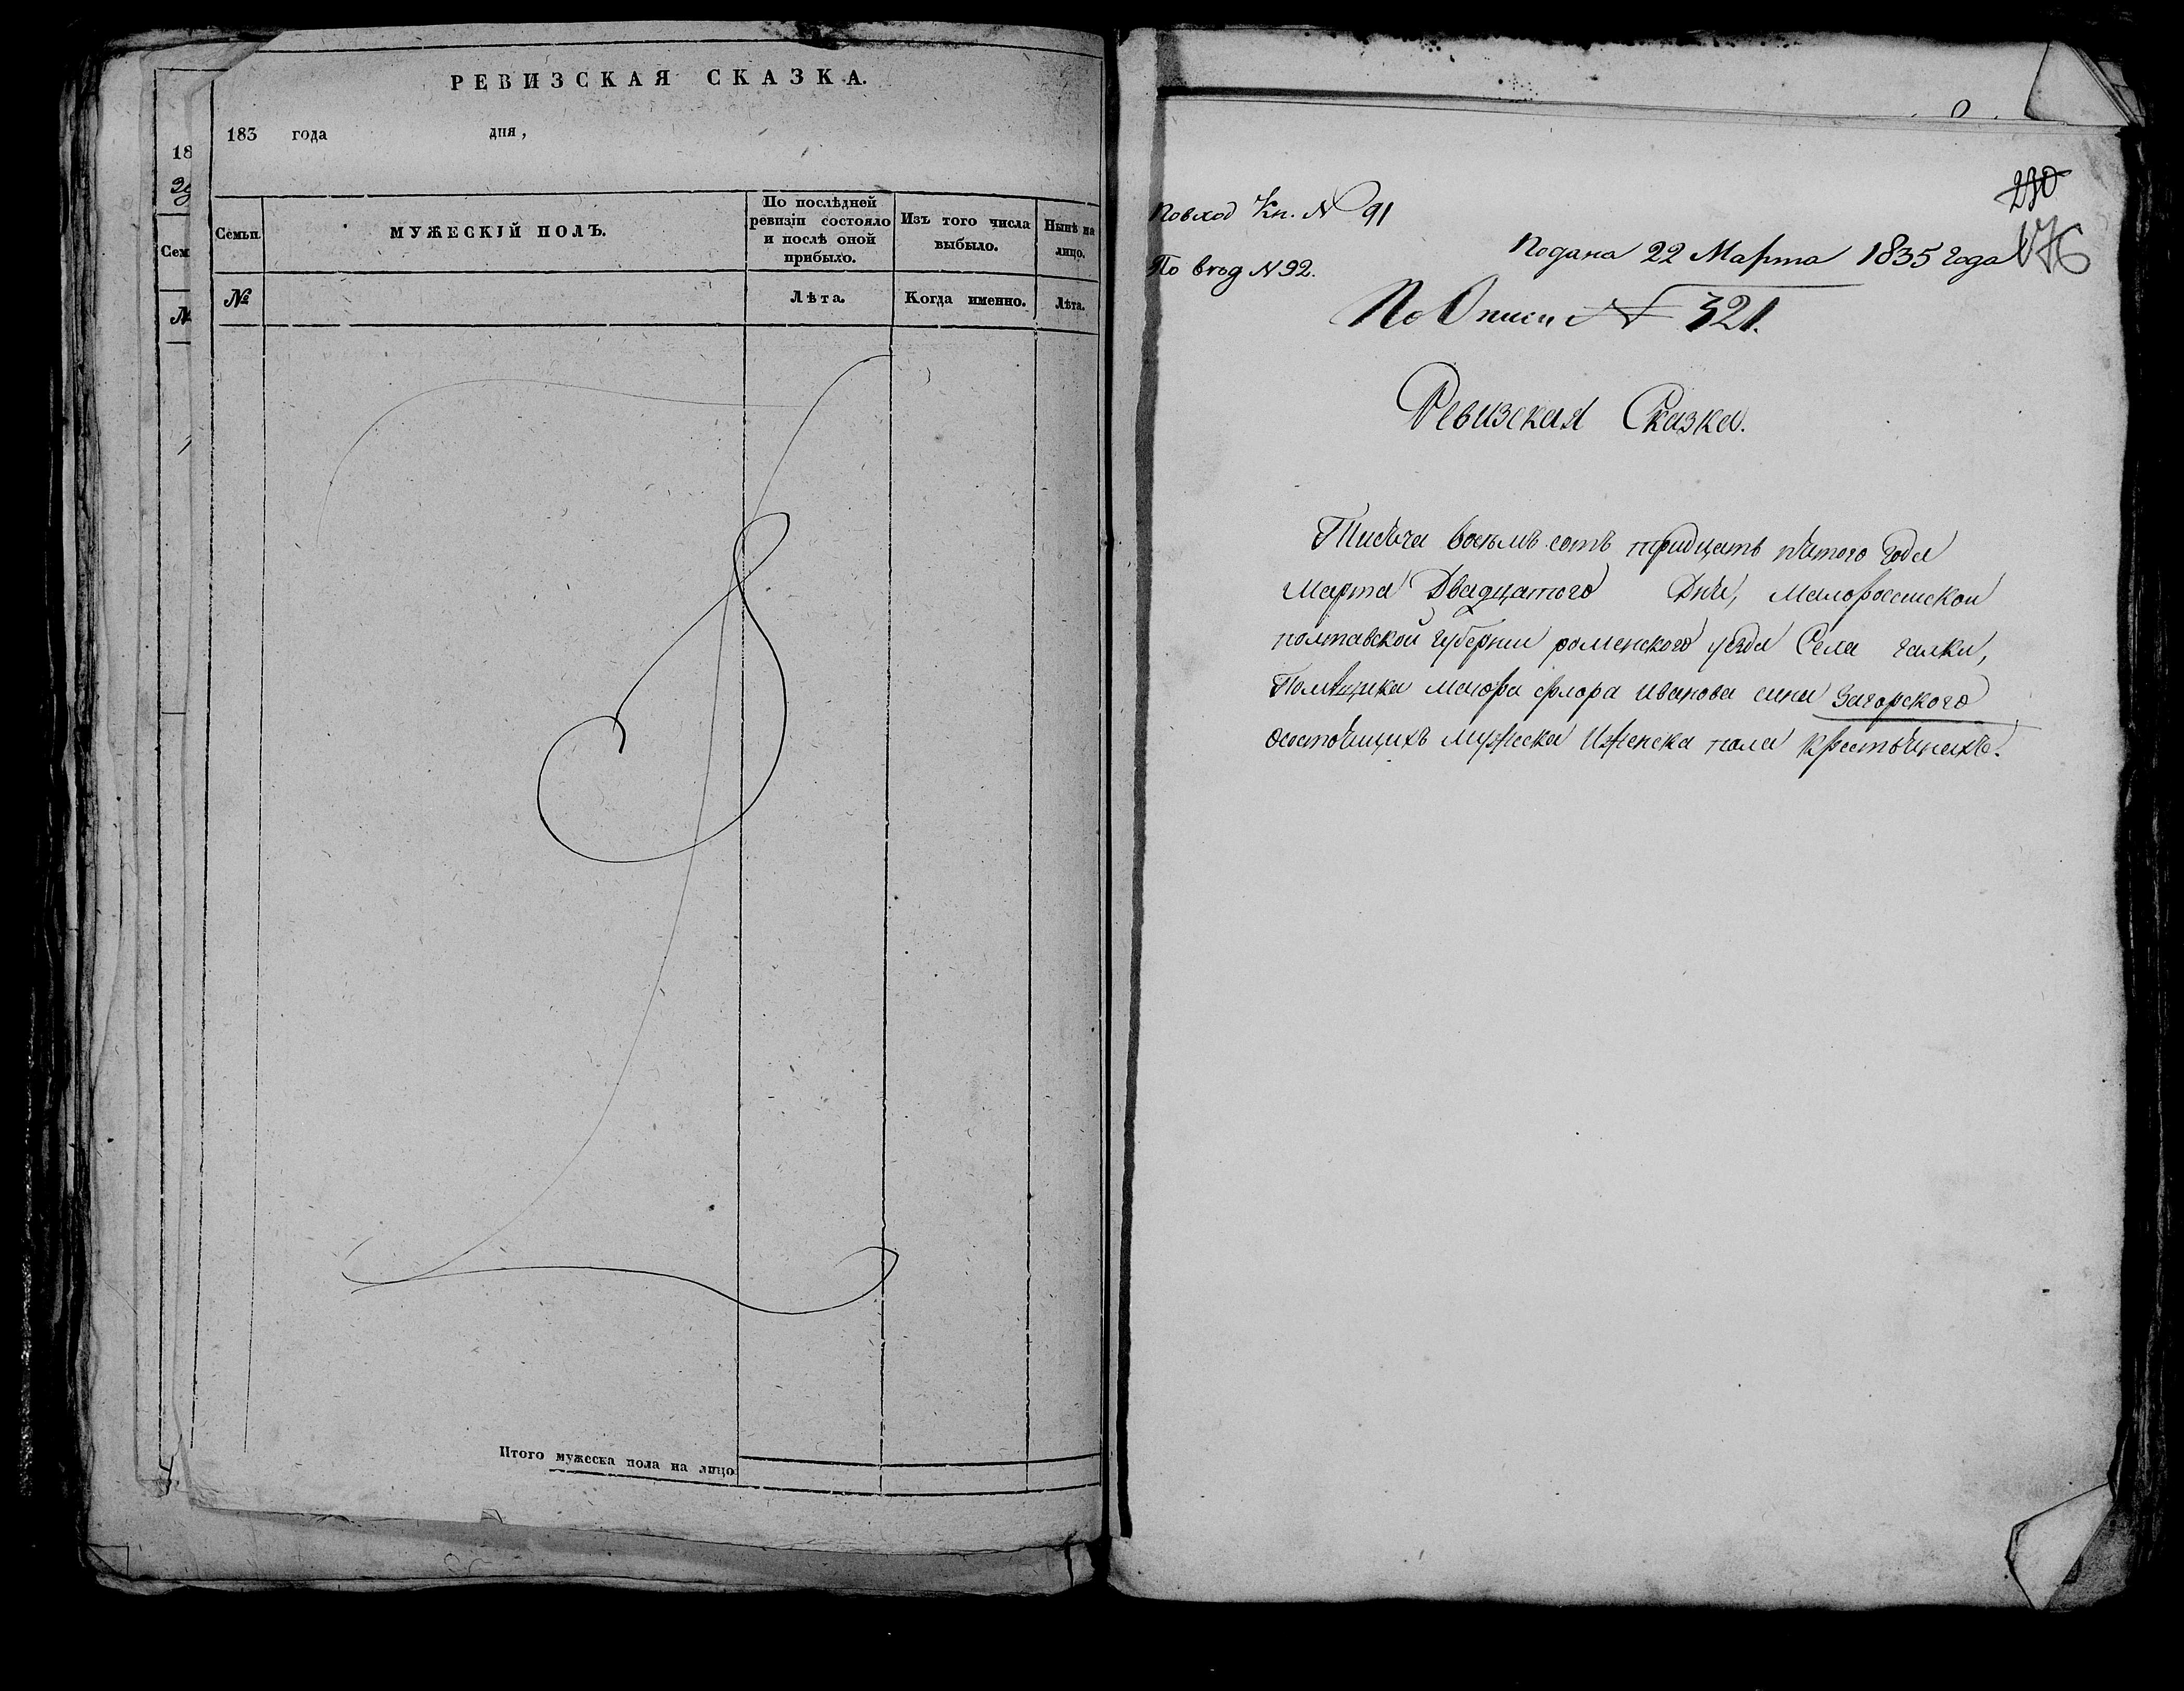 РЕВИЗСКАЯ СКАЗКА.
183 года дня,
18
Сем
№
Семьи.
МУЖЕСКІЙ ПОЛЪ.
По послѣдней
ревизіи состояло
и послѣ оной
прибыло.
Изъ того числа
выбыло.
Нынѣ на
лицо.
№
Лѣта.
Когда именно.
Лѣта.
Итого мужеска пола на лицо
230
176
Повход Кн. № 91
Подана 22 Марта 1835 года
По вход N 92.
По Описи № 321.
Ревизская Сказка.
Тисяча восемъ сотъ тридцать пятого Года
Марта Двадцатого Дня, Малороссиской
полтавской губернии роменского уезда Села галки,
Помѣщика маиора флора иванова сина Загорского
осостоящихъ мужеска Иженска пола крестьянахъ.